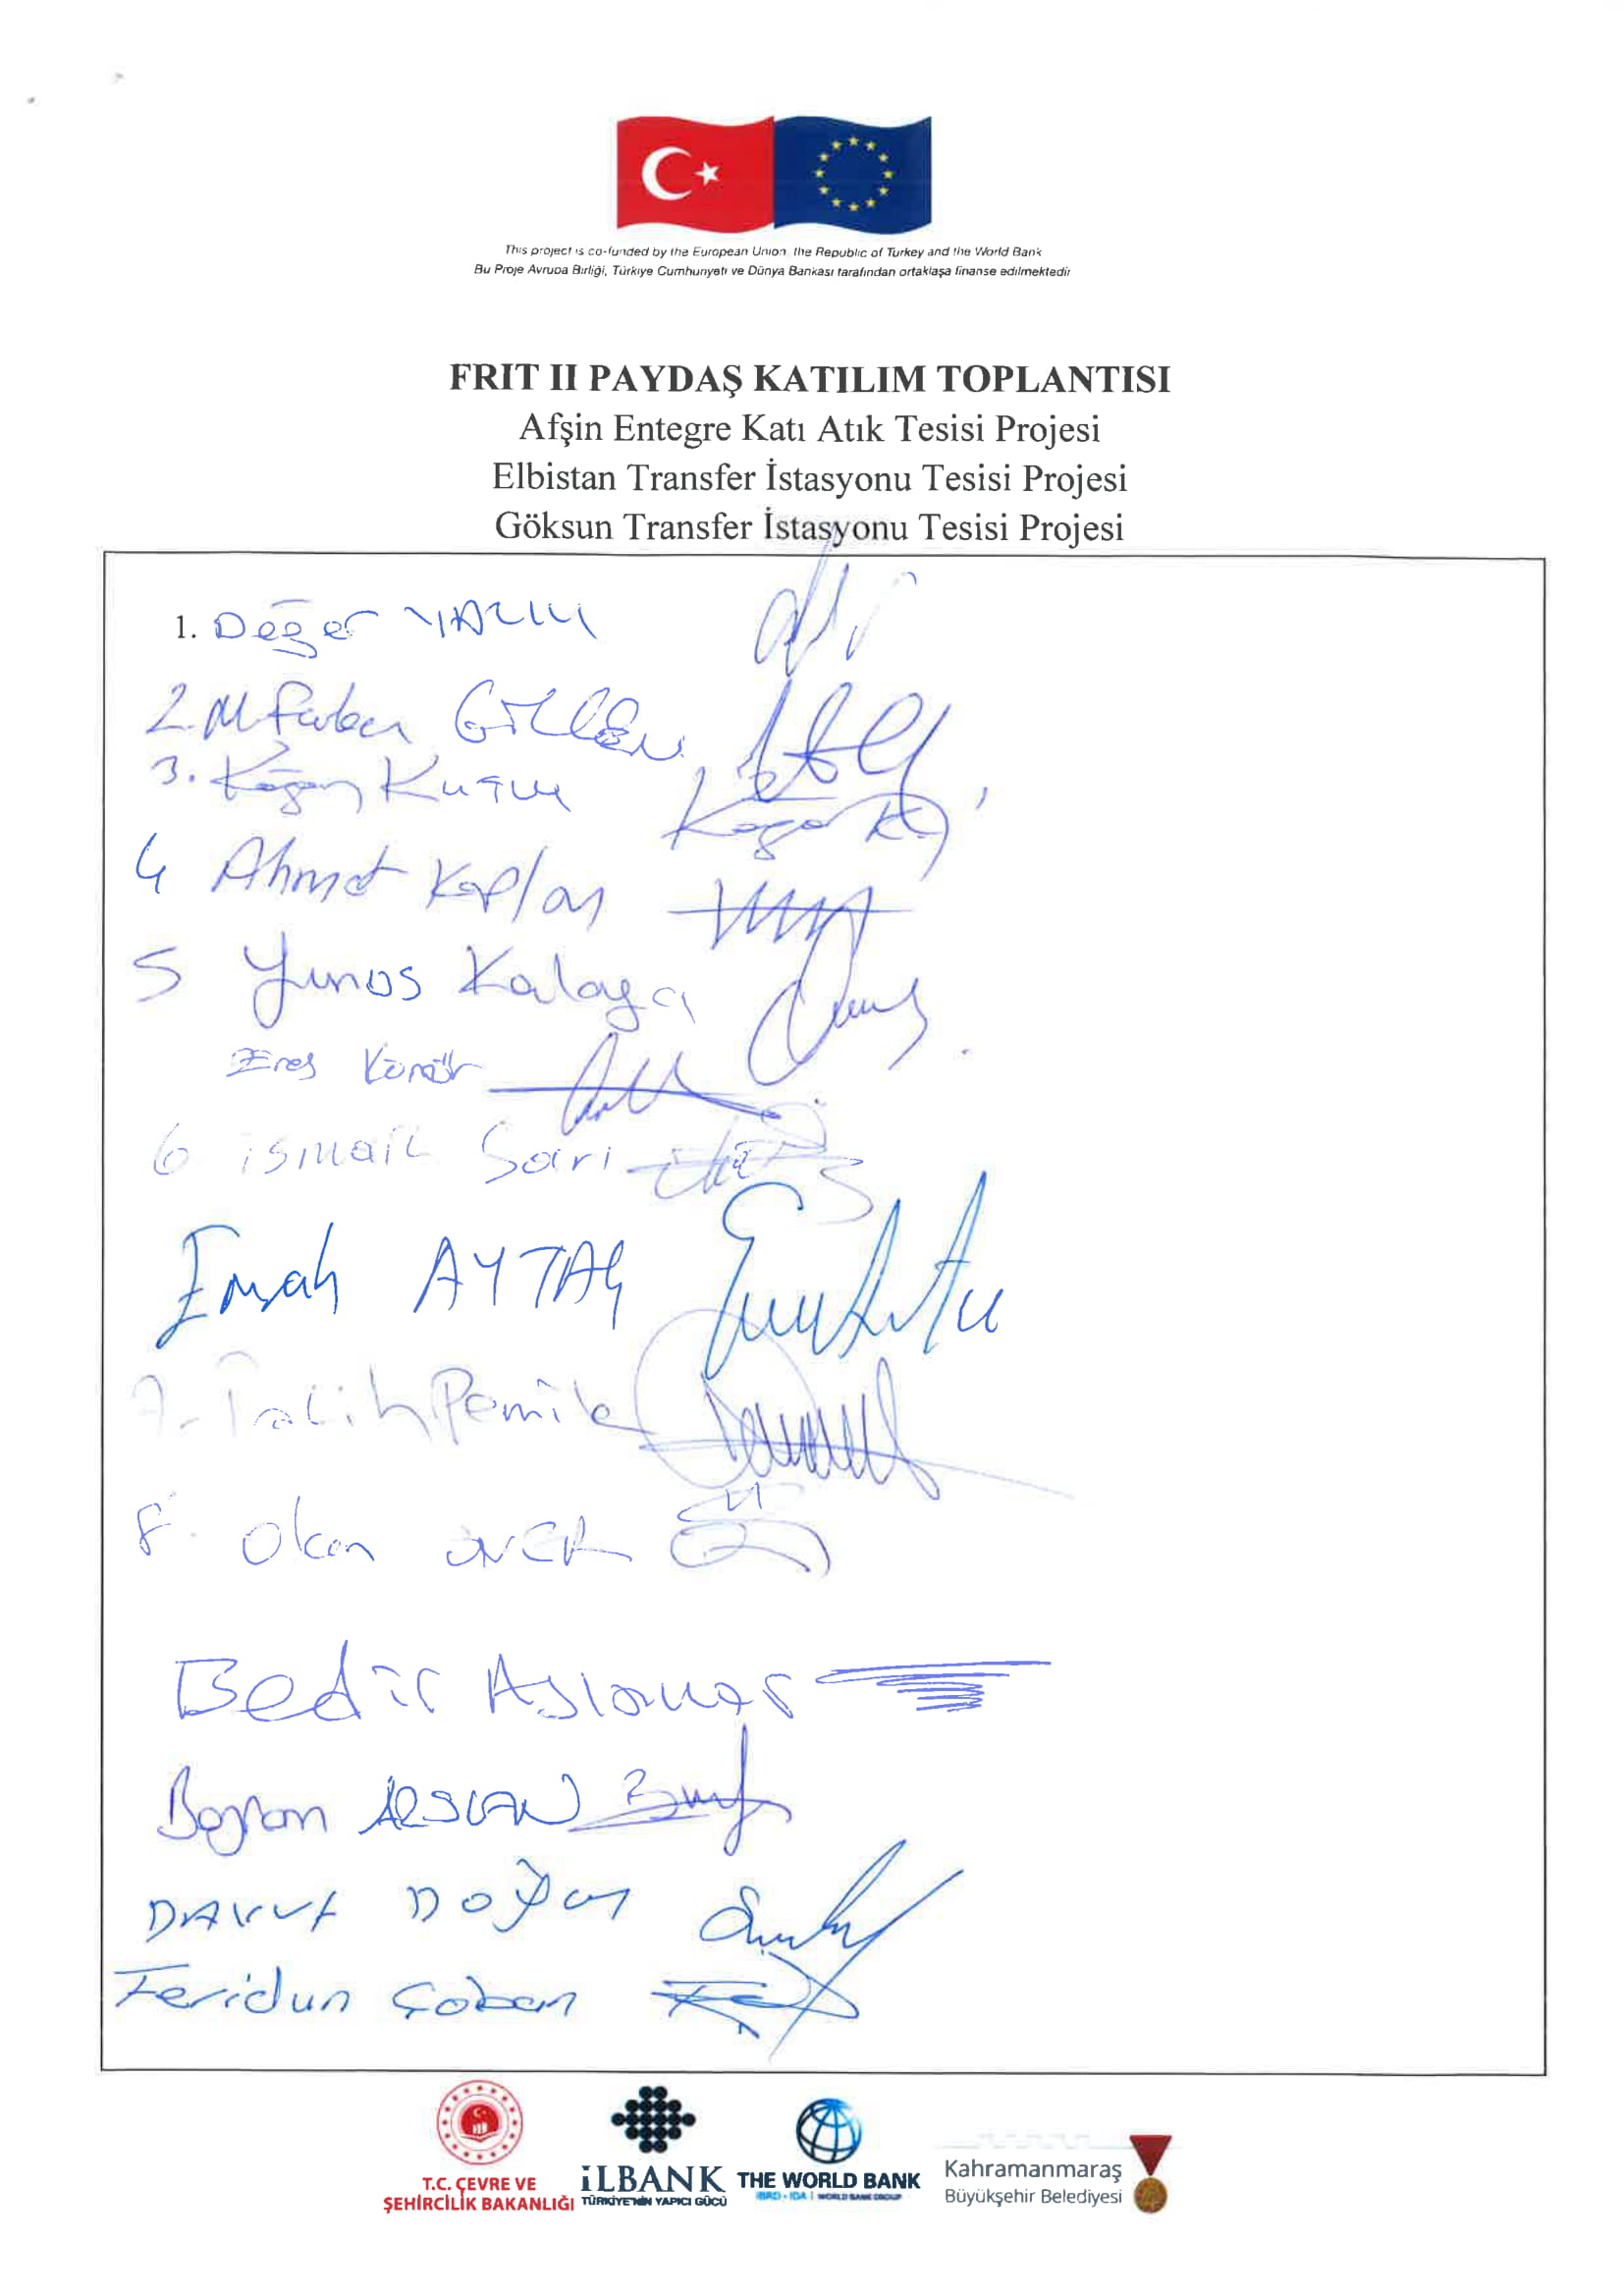 This project is co-funded by the European Union, the Republic of Turkey and the World Bank
Bu Proje Avrupa Birliği, Türkiye Cumhuriyeti ve Dünya Bankası tarafından ortaklaşa finanse edilmektedir
FRIT II PAYDAŞ KATILIM TOPLANTISI
Afşin Entegre Katı Atık Tesisi Projesi
Elbistan Transfer İstasyonu Tesisi Projesi
Göksun Transfer İstasyonu Tesisi Projesi
1. Değer
2. M Furkan
3. Kağan
4 Ahmet Kaplan
5 Yunus Kalaycı
Enes Kömür
6 ismail Sari
Emrah AYTAÇ
7- Talih
8. Okan
Bedir
Bayram ARSLAN
DAVUT Doğan
Feridun Çoban
T.C. ÇEVRE VE
ŞEHİRCİLİK BAKANLIĞI
iLBANK
TÜRKİYE'NİN YAPICI GÜCÜ
THE WORLD BANK
IBRD • IDA | WORLD BANK GROUP
Kahramanmaraş
Büyükşehir Belediyesi